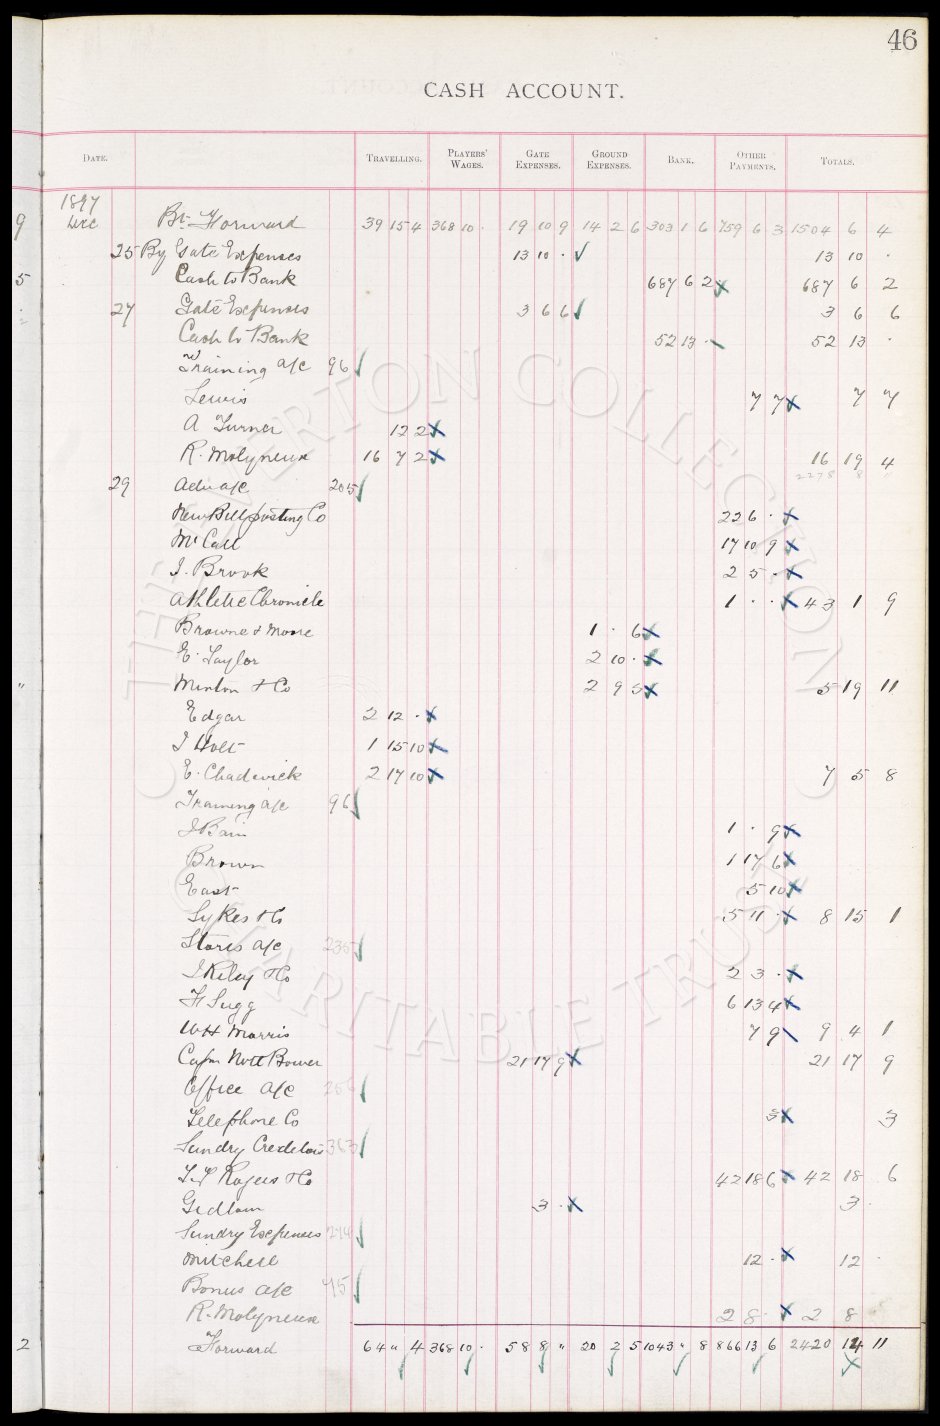 46
CASH ACCOUNT.
DATE. TRAVELLING. PLAYERS' WAGES. GATE EXPENSES. GROUND EXPENSES. BANK. OTHER PAYMENTS. TOTALS.
1897
Dec Bt Forward 39 15 4 368 10 · 19 10 9 14 2 6 303 1 6 759 6 3 1504 6 4
25 By Gate Expenses 13 10 · 13 10 ·
Cash to Bank 687 6 2 687 6 2
27 Gate Expenses 3 6 6 3 6 6
Cash to Bank 52 13 · 52 13 ·
Training a/c 96
Lewis 7 7 7 7
A Turner 12 2
R. Molyneux 16 7 2 16 19 4
2278 8
29 Adv a/c 205
New Bill posting Co 22 6 ·
McCall 17 10 9
J. Brook 2 5 ·
Athletic Chronicle 1 · · 43 1 9
Browne & Moore 1 · 6
E. Taylor 2 10 ·
Minton & Co 2 9 5 5 19 11
Edgar 2 12 ·
J Holt 1 15 10
E. Chadwick 2 17 10 7 5 8
Training a/c 96
J Bain 1 · 9
Brown 1 17 6
East 5 10
Sykes & Co 5 11 · 8 15 1
Stores a/c 235
J Riley & Co 2 3 ·
F Sugg 6 13 4
WH Morris 7 9 9 4 1
Capn Nott Bower 21 17 9 21 17 9
Office a/c 256
Telephone Co 3 3
Sundry Creditors 363
T.P Rogers & Co 42 18 6 42 18 6
Gidlam 3 · 3 ·
Sundry Expenses 244
Mitchell 12 · 12 ·
Bonus a/c 75
R. Molyneux 2 8 · 2 8
Forward 64 " 4 368 10 · 58 8 " 20 2 5 1043 " 8 866 13 6 2420 14 11
9
5
2
THE EVERTON COLLECTION
CHARITABLE TRUST